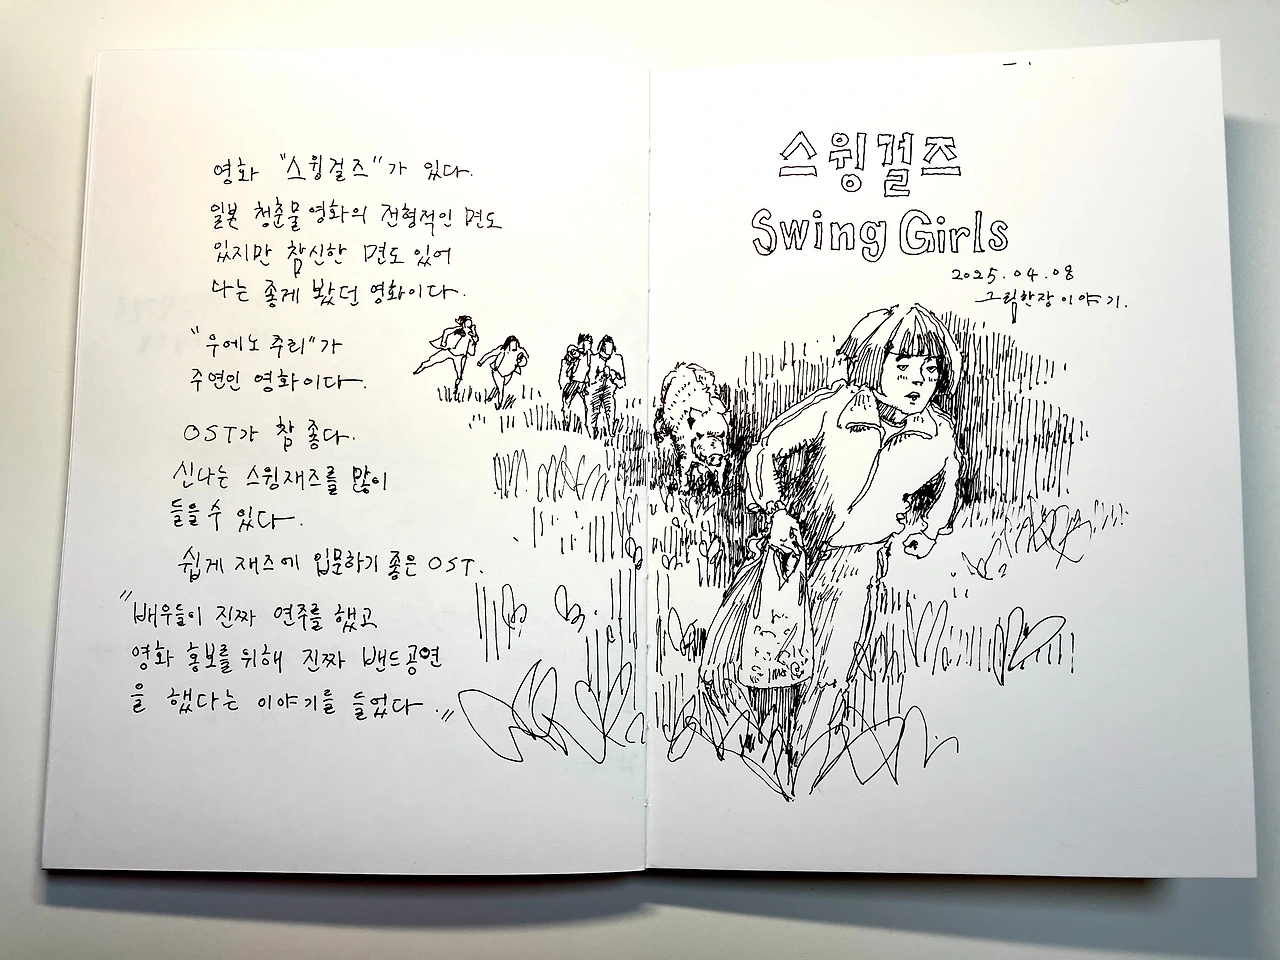 영화 "스윙걸즈"가 있다.
일본 청춘물 영화의 전형적인 면도
있지만 참신한 면도 있어
나는 좋게 봤던 영화이다.
"우에노 주리"가
주연인 영화이다.
OST가 참 좋다.
신나는 스윙재즈를 많이
들을 수 있다.
쉽게 재즈에 입문하기 좋은 OST.
"배우들이 진짜 연주를 했고
영화 홍보를 위해 진짜 밴드공연
을 했다는 이야기를 들었다."
스윙걸즈
Swing Girls
2025.04.08
그림한장 이야기.